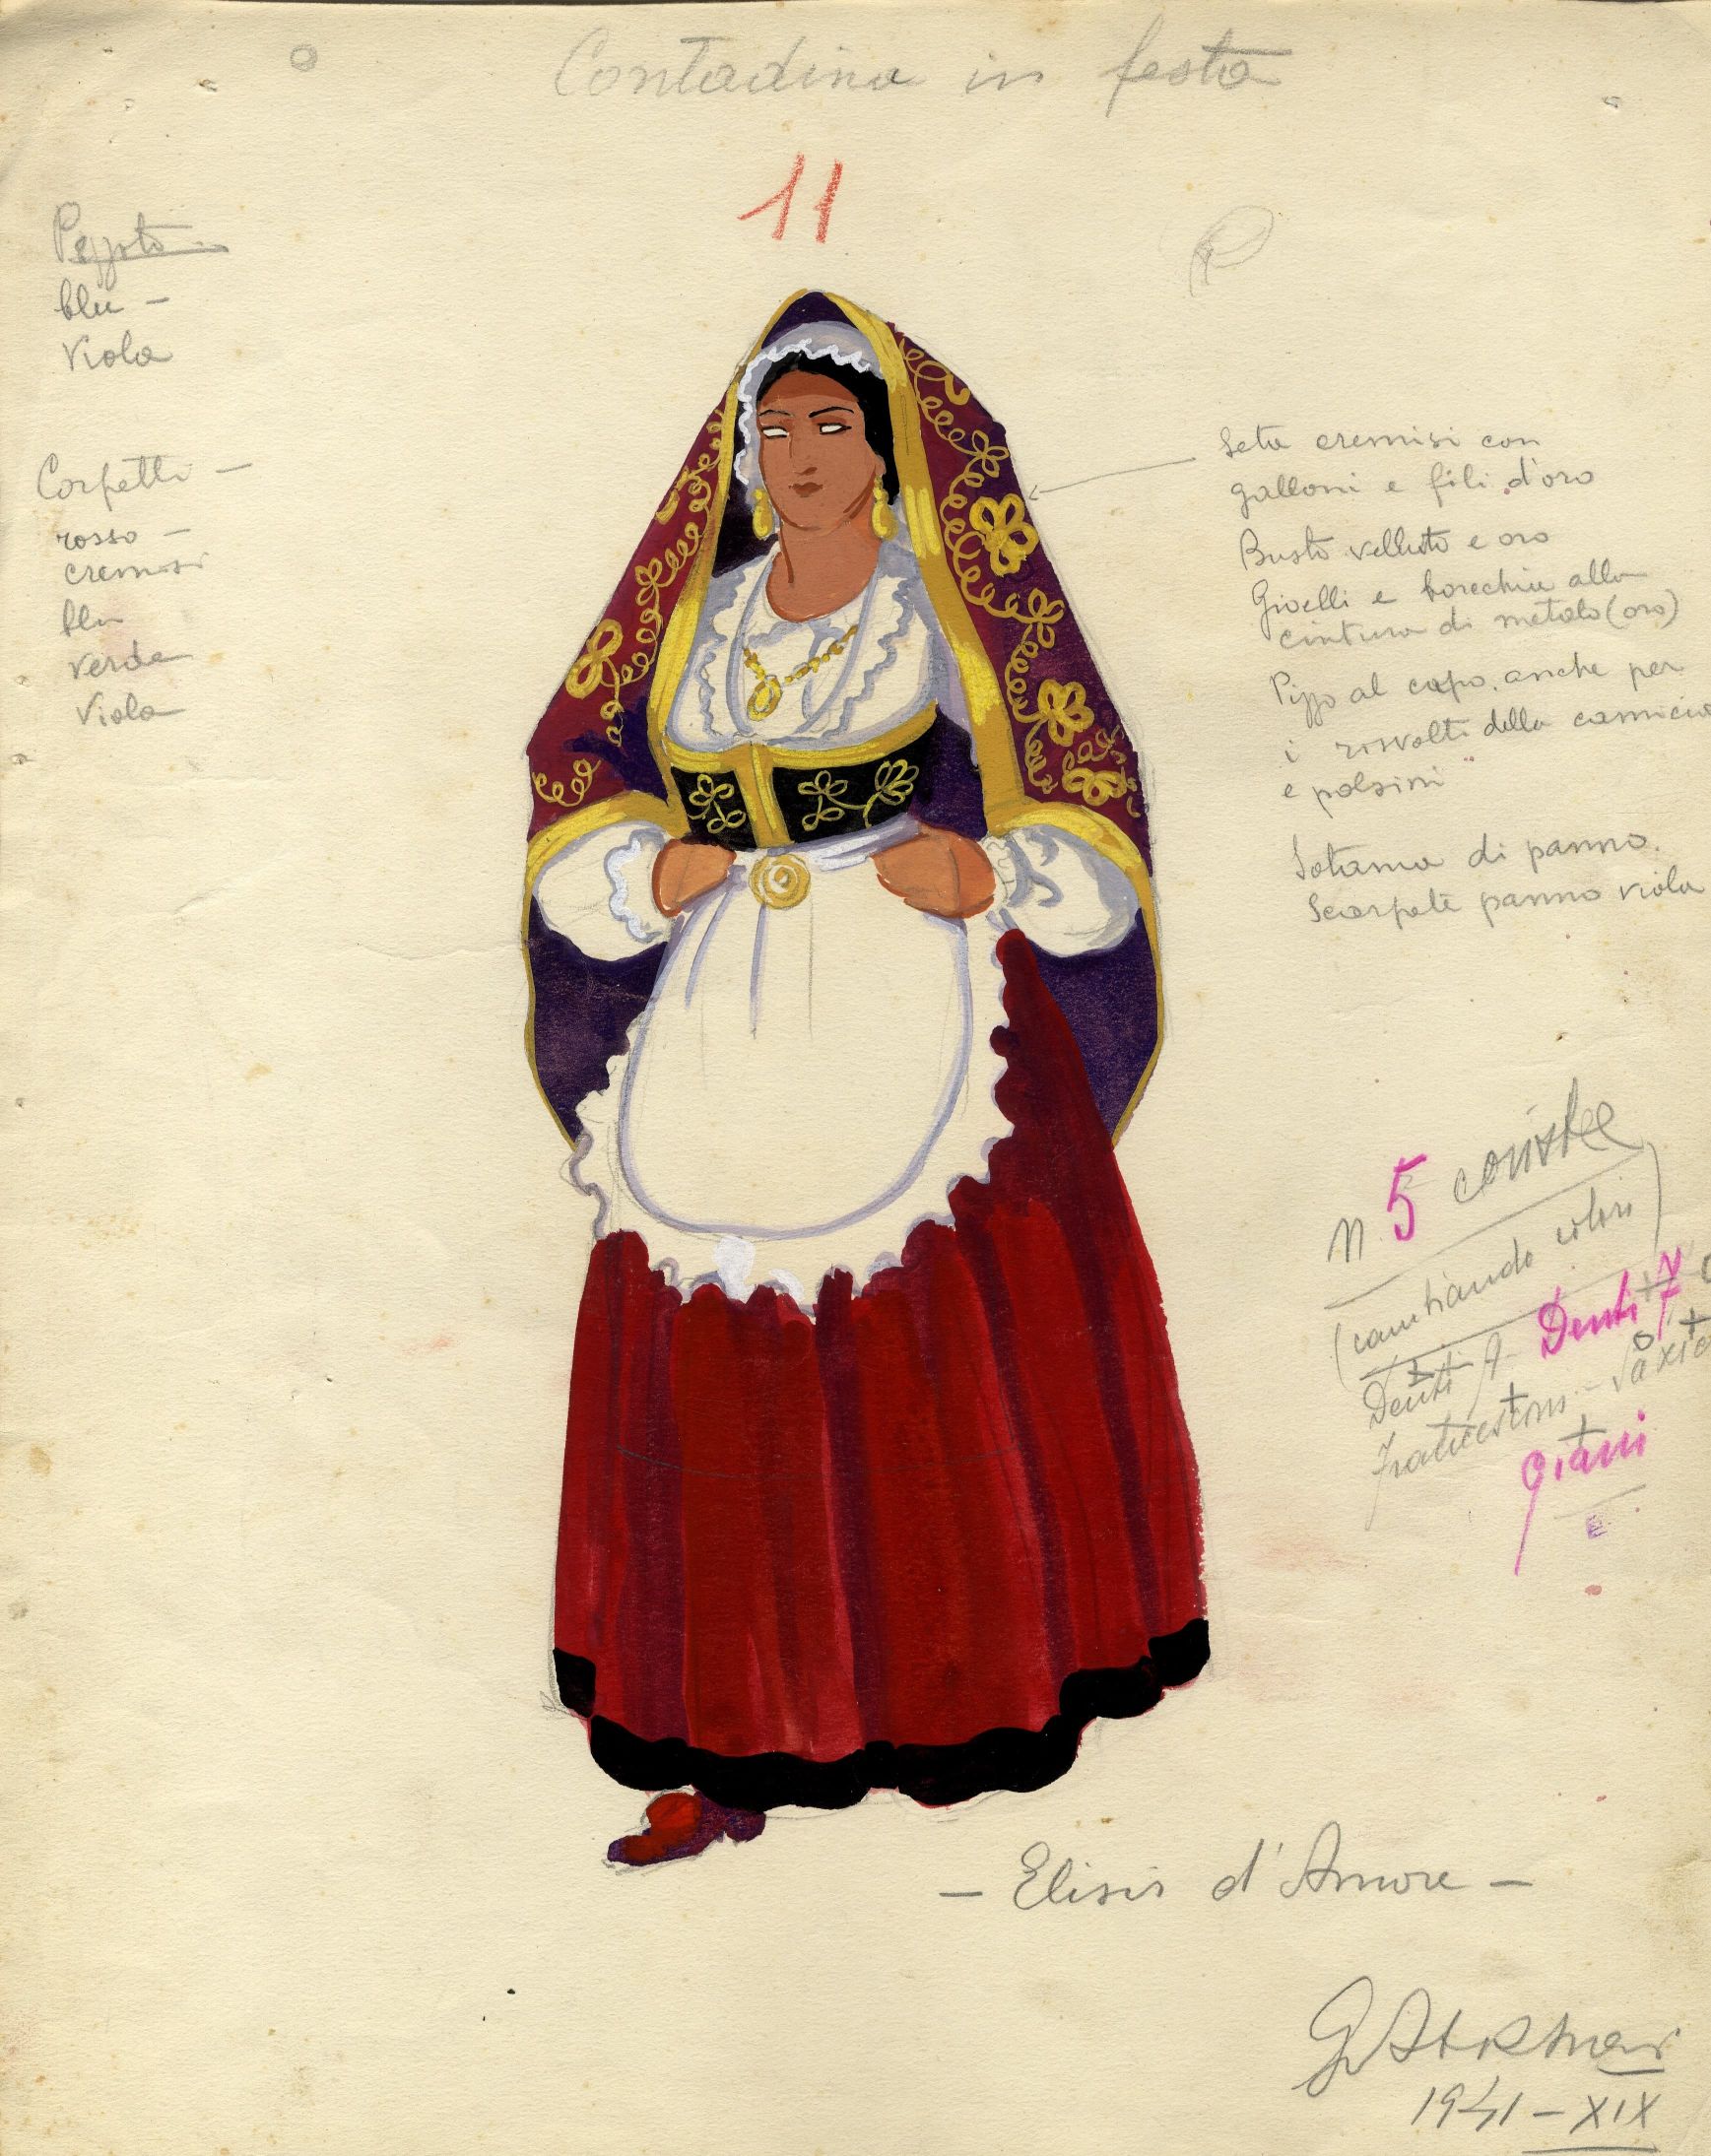 Contadina in festa
11
Pezzotto
blu -
viola
Corpetti -
rosso -
cremisi
blu
verde
viola
Seta cremisi con
galloni e fili d'oro
Busto velluto e oro
Gioielli e borchia alla
cintura di metalo (oro)
Pizzo al capo. anche per
i risvolti della camicia
e polsini
Sottana di panno.
Scarpette panno viola
N. 5 coriste
(cambiando colori)
Denti 7
Denti 7
Giani
- Elisir d'Amore -
1941 - XIX